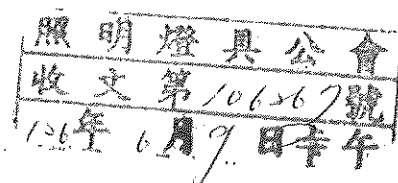 照明燈具公會
收文第106267號
106年6月9日午